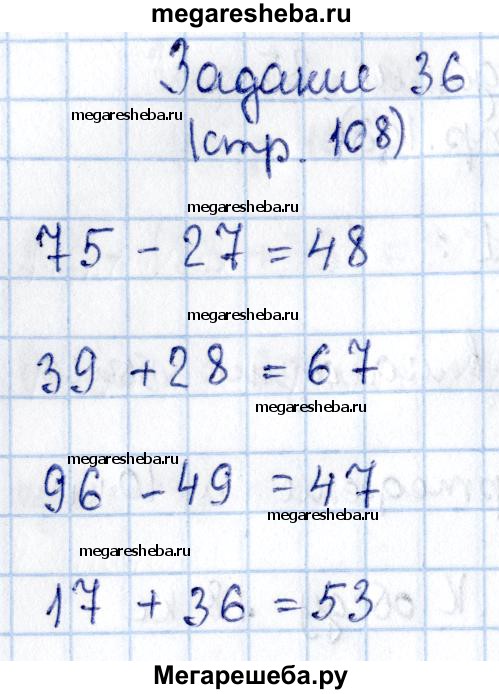 megaresheba.ru
Задание 36
megaresheba.ru
(стр. 108)
megaresheba.ru
75 - 27 = 48
megaresheba.ru
39 + 28 = 67
megaresheba.ru
megaresheba.ru
96 - 49 = 47
megaresheba.ru
megaresheba.ru
17 + 36 = 53
Мегарешеба.ру